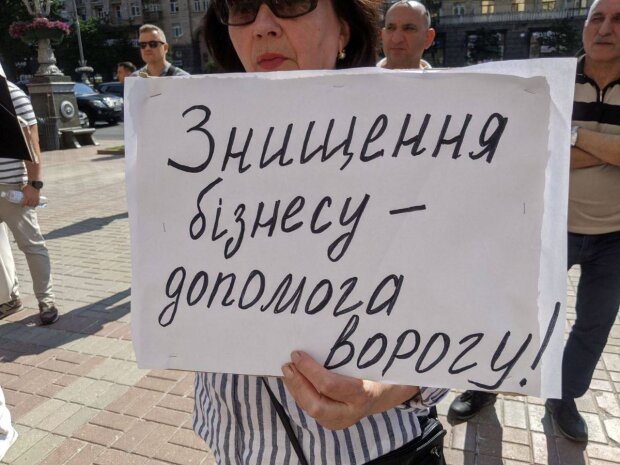 Знищення
бізнесу –
допомога
ворогу!